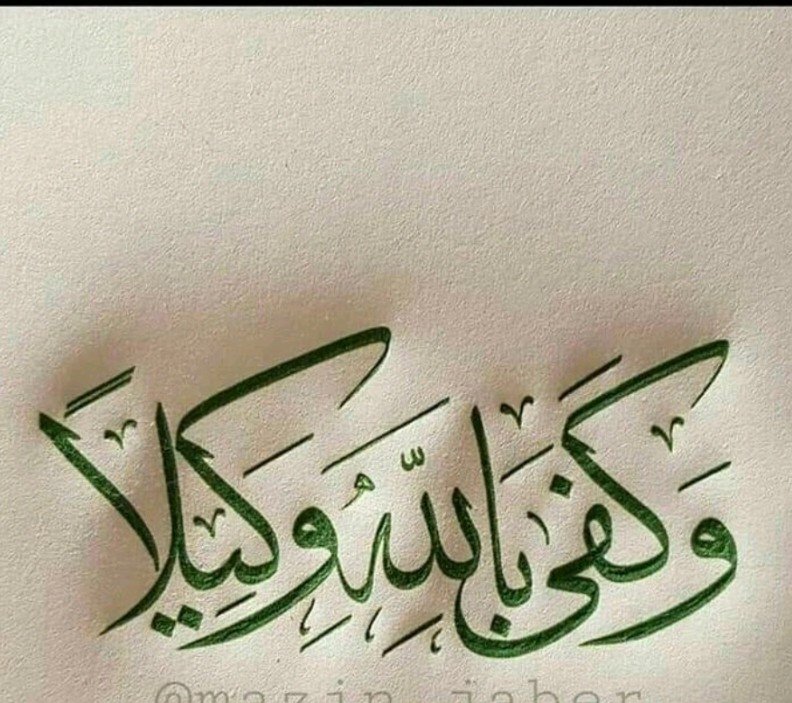 وَكَفَى بِاللَّهِ وَكِيلاً
@mazin_jaber